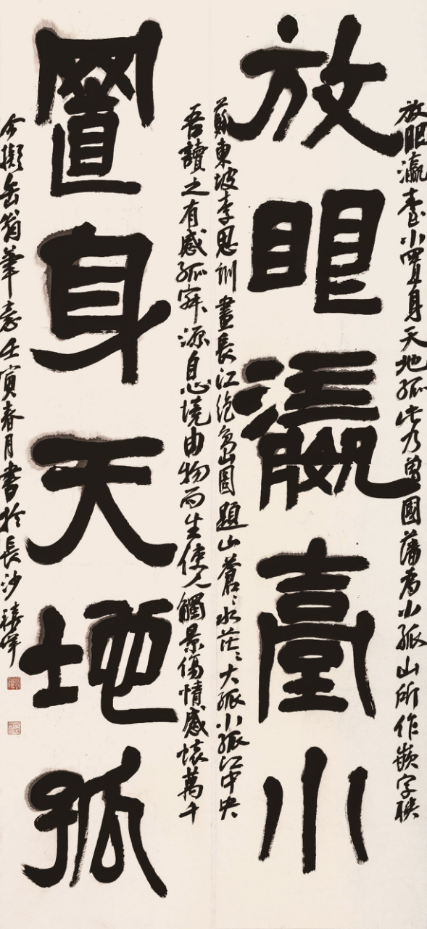 放眼瀛臺小置身天地孤此乃曾國藩為小孤山所作嵌字联
放眼瀛臺小
蘇東坡李思訓畫長江绝島圖題山蒼々水茫々大孤小孤江中央
吾讀之有感孤寂源自心境由物而生使人觸景傷情感懷萬千
置身天地孤
今擬缶翁筆意壬寅春月書於長沙